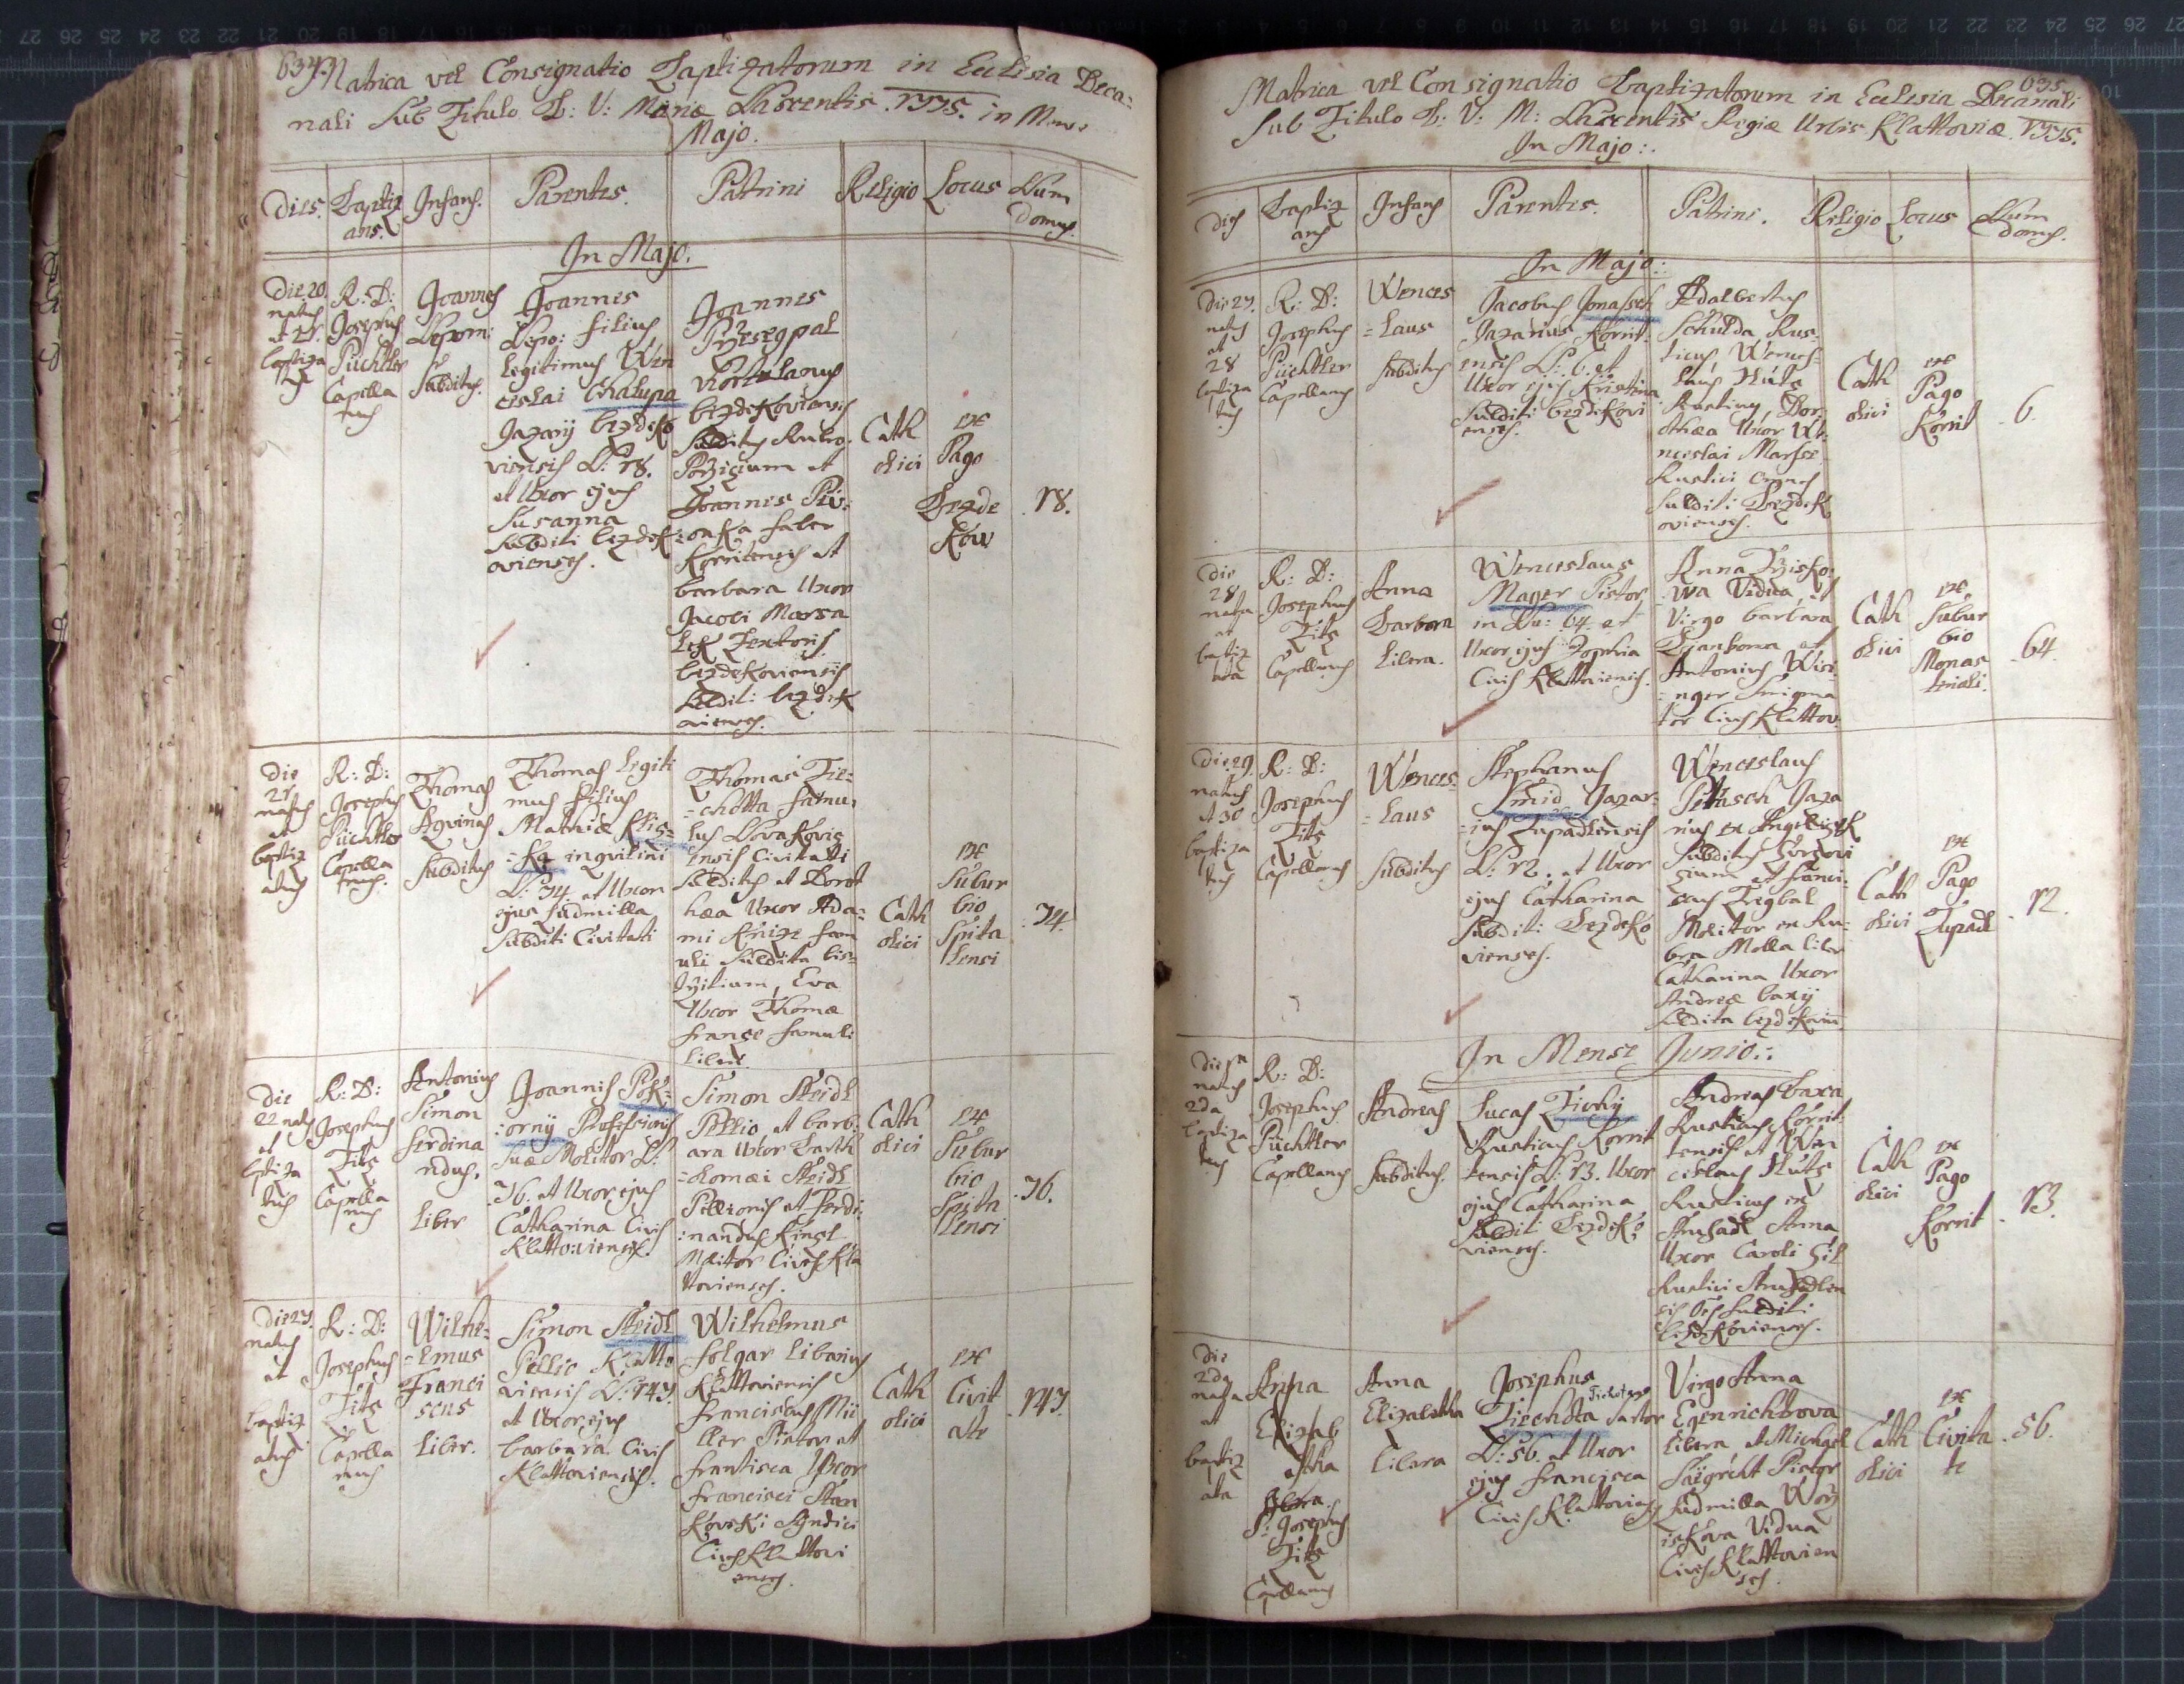 634.
Matrica vel Consignatio Baptizatorum in Ecclesia Deca=
nali Sub Titulo B: V: Mariæ Nascentis 1775. in Mense
Majo.
Dies. Baptiz Infans. Parentes. Patrini Religio Locus Num
ans. Domus.
In Majo.
Die 20
natus
et 21
baptiza
tus
R: D:
Josephus
Püchtler
Capella
nus
Joannes
Nepom:
Subditus.
Joannes
Nepo: filius
legitimus Wen
ceslai Chalupa
Jazarij bezdeko
viensis N: 18.
et Uxor ejus
Susanna
Subditi bezdek
oviensis.
Joannes
Przesegpal
Hortulanus
bezdekoviensis
Subditus Rubro
Porziczium et
Joannes Piv:
:onka faber
Korritensis et
barbara Uxor
Jacobi Marsa
lek Textoris
bezdekoviensis
Subdit: bezdek
ovienses.
Cath
olici
ex
Pago
Bezde
kow
18.
Die
21
natus
et
baptiz
atus
R: D:
Josephus
Püchtler
Capella
nus.
Thomas
Aqvinas
Subditus
Thomas legiti
mus filius
Mathiæ Klis=
=ka inqvilini
N: 74. et Uxor
ejus Ludmilla
Subditi Civitati
Thomas Tie=
=chotta famu,
lus Novakovic
ensis Civitati
Subditus et Dorot
hæa Uxor Ada=
mi Knize fam
uli Subdita bis=
tzitium, Eva
Uxor Thomæ
france famuli
libera.
Cath
olici
ex
Subur
bio
Spita
lensi
74.
Die
22 natus
et
baptiza
tus
R: D:
Josephus
Tits
Capella
nus
Antonius
Simon
Ferdina
ndus,
Liber
Joannis Pok:
:orny Professionis
Suæ Molitor N:
76. et Uxor ejus
Catharina Cives
Klattovienses.
Simon Steidl
Pellio et barb:
ara Uxor Barth
=olomæi Steidl
Pellionis et Ferdi:
:nandus Kinzl
Molitor Cives Kla
ttovienses.
Cath
olici
ex
Subur
bio
Spita
lensi
76.
Die 27.
natus
et
baptiz
atus
R: D:
Josephus
Tits
Capella
nus
Wilhe=
=lmus
Franci
scus
Liber.
Simon Steidl
Pellio Klatto
viensis N: 147.
et Uxor ejus
barbara Cives
Klattovienses.
Wilhelmus
folgar libarius
Klattoviensis
franciscus Mü
ller Pistor et
frantisca Uxor
francisci Stan
kovski Syndici
Cives Klattovi
enses.
Cath
olici
ex
Civit
ate
147.
635.
Matrica vel Consignatio Baptizatorum in Ecclesia Decanali
Sub Titulo B: V: M: Nascentis Regiæ Urbis Klattoviæ 1775.
In Majo:.
Dies Baptiz Infans Parentes. Patrini. Religio Locus Num
ans domus.
In Majo:
Die 27.
natus
et
28
baptiza
tus
R: D:
Josephus
Püchtler
Capellanus
Wences
=laus
Subditus
Jacobus Jonassek
Jazarius Korrit
ensis N: 6. et
Uxor ejus Kristina
Subditi bezdekovi
enses.
Adalbertus
Schulda Rus
ticus Wences=
laus Huts
Rusticus, Dor:
othæa Uxor We:
nceslai Marsse
Rustici Omnes
Subdit: Bezdek
ovienses.
Cath
olici
ex
Pago
Korrit
6.
Die
28
nata
et
baptiz
ata
R: D:
Josephus
Tits
Capellanus
Anna
Barbara
Libera.
Wenceslaus
Mayer Pistor
in Nu: 64. et
Uxor ejus Zophia
Cives Klattovienses.
Anna Trzisko:
:wa Vidua, et
Virgo barbara
et
Antonius Wiei
:nger Smigma
tor Cives Klattov:
Cath
olici
ex
Subur
bio
Monas
teriali.
64.
Die 29.
natus
et 30
baptiza
tus
R: D:
Josephus
Tits
Capellanus
Wences
=laus
Subditus
Stephanus
Smid Jazar:
=ius Tupadlensis
N: 12. et Uxor
ejus Catharina
Subditi Bezdeko
vienses.
Wenceslaus
Petrasch Jaza
rius ex
Subditus
et franci:
scus
Molitor ex Ru=
bra Molla liber
Catharina Uxor
Andreæ baxy
Subdita bezdekovien
Cath
olici
ex
Pago
Tupadl
12.
In Mense Junio:.
Die 1a
natus
2da
baptiza
tus
R: D:
Josephus
Püchtler
Capellanus
Andreas
Subditus.
Lucas Tichy
Rusticus Korrit
tensis N: 13. Uxor
ejus Catharina
Subditi Bezdeko
vienses.
Andreas baxa
Rusticus Korrit
tensis et Wen
ceslaus Huts
Rusticus ex
Anna
Uxor Caroli Hil
Rustici
Subditi
bezdekovienses.
Cath
olici
ex
Pago
Korrit
13.
Die
2da
nata
et
baptiz
ata
Anna
Elizab
etha
libera.
P: Josephus
Tits
Capellanus
Anna
Elizabetha
Libera
Josephus
Tichotta
Tiechota Sartor
N: 56. et Uxor
ejus francisca
Cives Klattovienses
Virgo Anna
Egenrichtrova
libera et Michael
Pictor
Ludmilla Worz
iskova Vidua
Cives Klattovien
ses.
Cath
olici
ex
Civita
te
56.